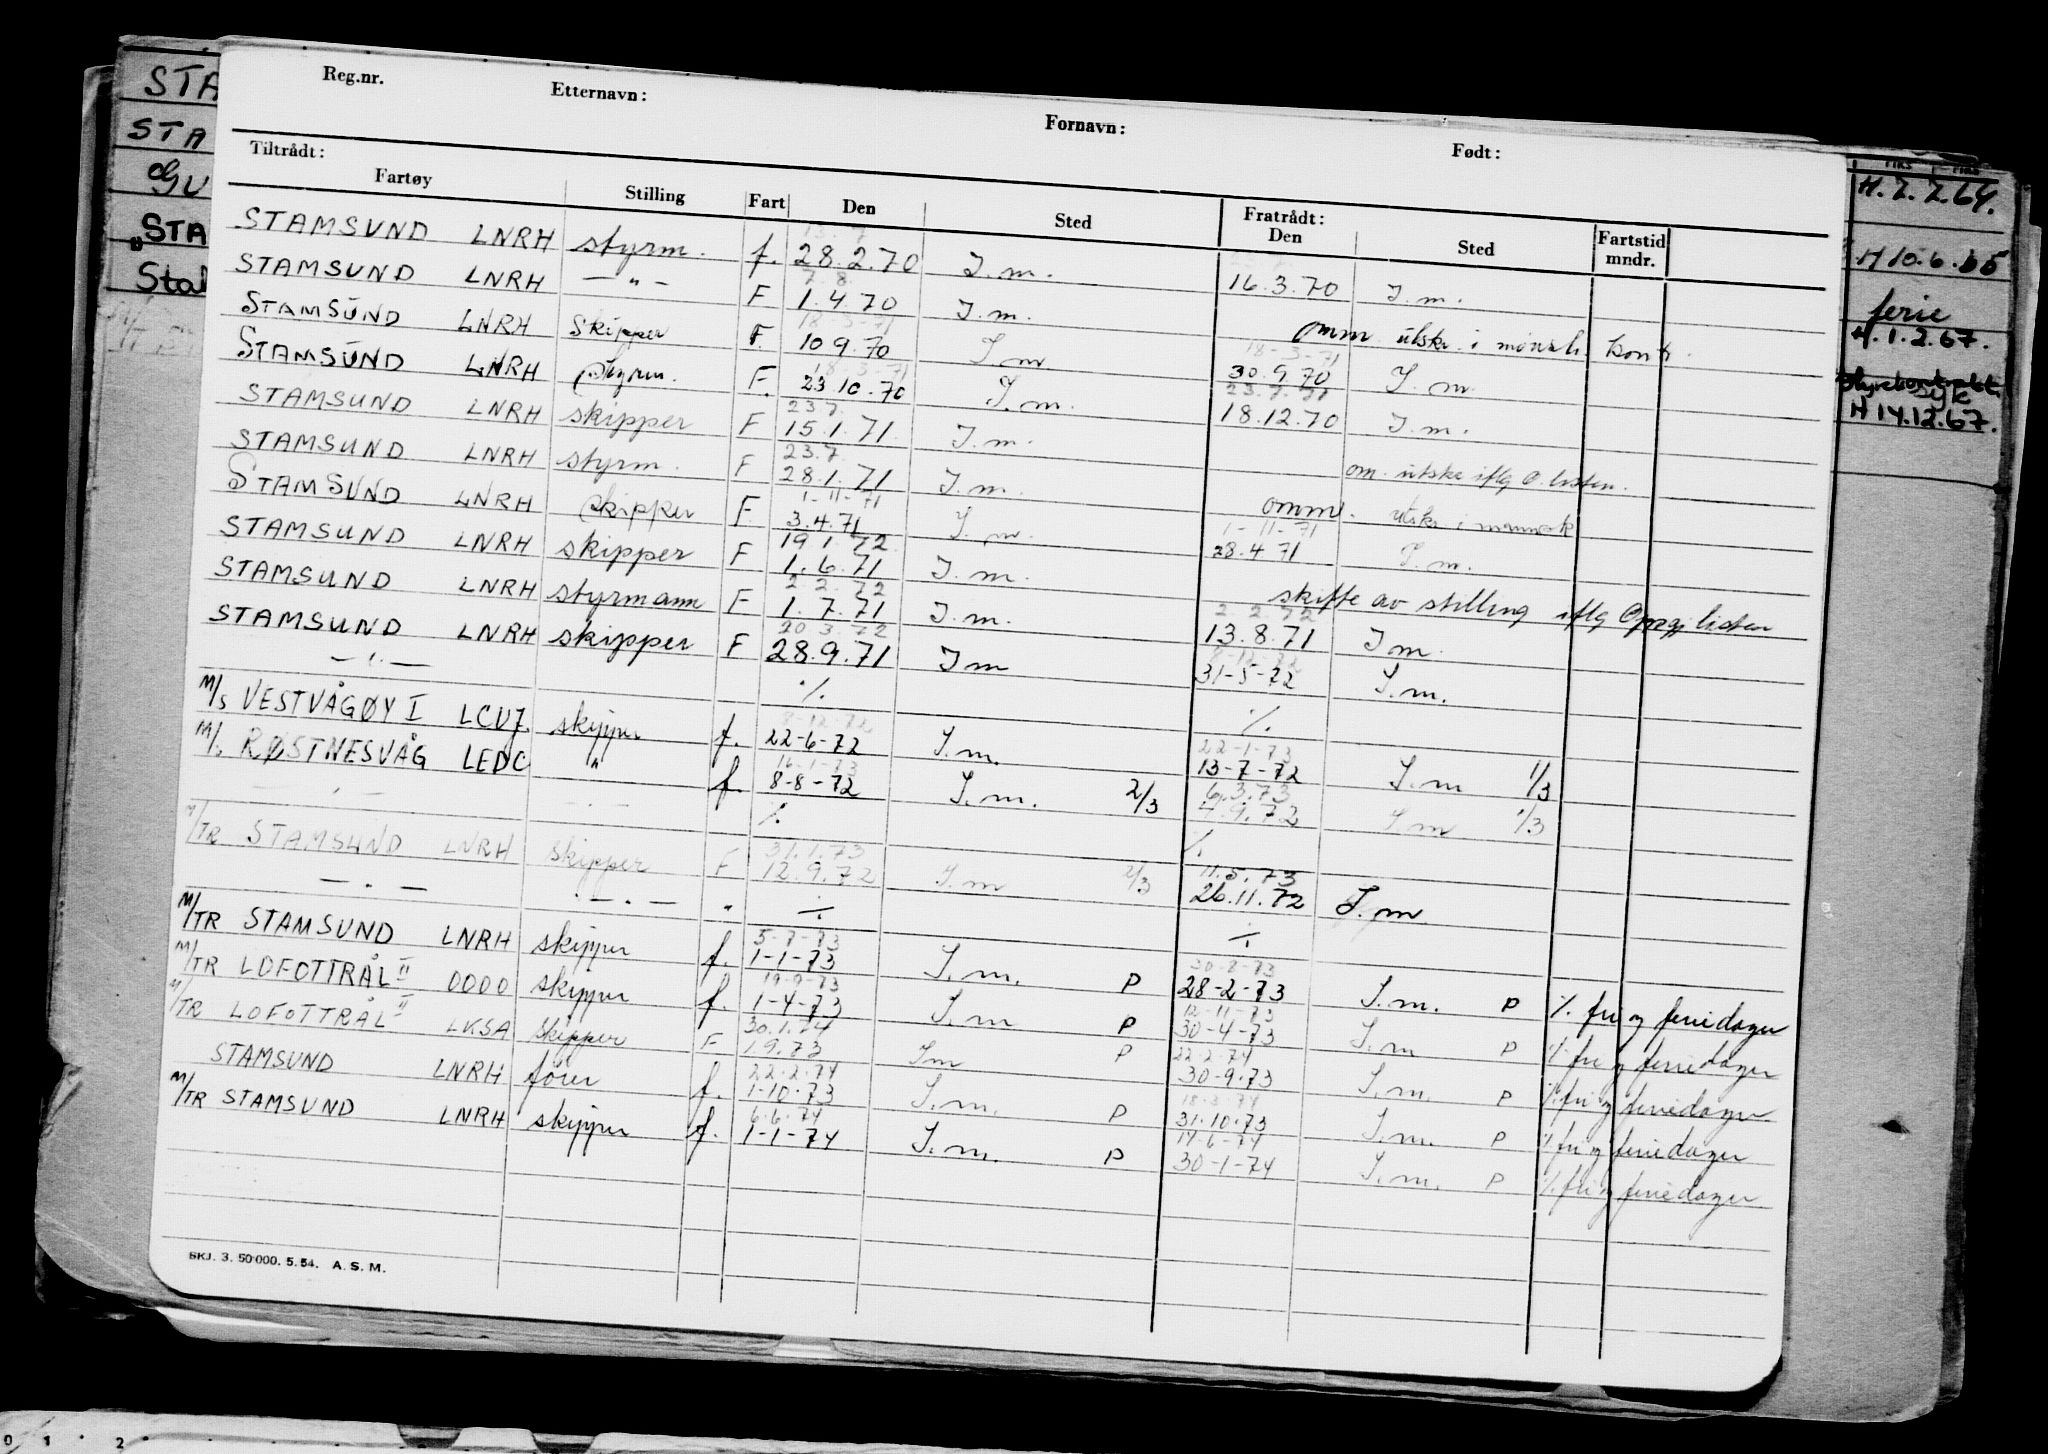 Reg.nr. Etternavn: Fornavn: Født:
Tiltrådt: Fratrådt:
Fartøy Stilling Fart Den Sted Den Sted Fartstid mndr.
STAMSUND LNRH styrm. f. 28.2.70 I.m. 16.3.70 I.m.
STAMSUND LNRH — " — F 7.8. 1.4.70 I.m. omm. utskr. i mønstr. kontr.
STAMSUND LNRH Skipper F. 18-3-71 10 9.70 I m 18-3-71 30.9.70 I.m.
STAMSUND LNRH Styrm. F. 18.3.71 23 10.70 I.m. 23.7.71 18.12.70 I.m.
STAMSUND LNRH skipper F 23.7. 15.1.71. I.m. om. utskr iflg O.listen.
STAMSUND LNRH styrm. F 23.7. 28.1.71 I.m. omm. utskr i
STAMSUND LNRH skipper F. 1-11-71 3.4.71 I.m. 1-11-71 28.4 71 I.m.
STAMSUND LNRH skipper F 19 1.72. 1.6.71 I.m. skifte av stilling iflg Oppgj listen
STAMSUND LNRH styrmann F 2.2.72 1.7.71 I.m. 2.2.72 13.8.71 I m.
STAMSUND LNRH skipper F 20 3.72 28.9.71 I m 31-5-72 I.m.
— " — % %
M/S VESTVÅGØY I LCVJ. skipper f. 8-12-72 22-6-72 I.m. 22-1-73 13-7-72 I.m 1/3
M/S RØSTNESVÅG LEDC " f. 16-1-73 8-8-72 I.m. 2/3 6.3.73 4.9.72 I m 1/3
— " — — " — % %
M/TR STAMSUND LNRH skipper F 31.1.73 12.9.72 I.m 2/3 11.5.73 26.11.72 I.m
— " — — " — " % %
M/TR STAMSUND LNRH skipper f. 5-7-73 1-1-73 I.m. P 30-8-73 28-2-73 I.m. P % fri og feriedager
M/TR LOFOTTRÅL II OOOO skipper f. 19-9-73 1-4-73 I.m P 12-11-73 30-4-73 I.m P % fri og feriedager
M/TR LOFOTTRÅL II LKSA skipper F 30.1.74 1.9.73 Im P 22-2-74 30-9-73 I.m. P % fri og feriedager
STAMSUND LNRH fører f. 22-2-74 1-10-73 I.m. P 18-3-74 31.10.73 I.m. P % fri og feriedager
M/TR STAMSUND LNRH skipper f. 6.6.74 1-1-74 I.m. P 14-6-74 30-1-74 I.m. P % fri og feriedager
SKJ. 3. 50000. 5.54. A.S.M.
STA
STA
GU
„STA
Sta
H.2.2.64.
H 10.6.65
ferie
H.1.2.67.
syk
H 14.12.67.
0 1 2